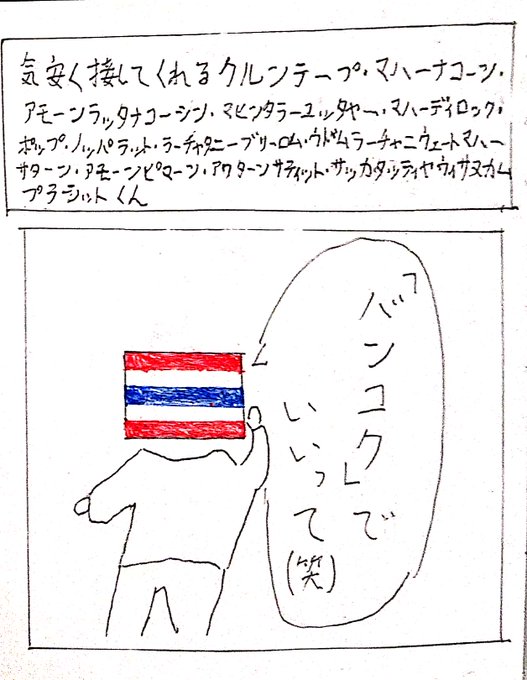 気安く接してくれるクルンテープ・マハーナコーン・
アモーンラッタナコーシン・マヒンタラーユッタヤー・マハーディロック・
ポップ・ノッパラット・ラーチャタニーブリーロム・ウドムラーチャニウェートマハー
サターン・アモーンピマーン・アワターンサティット・サッカタッティヤウィサヌカム
プラシットくん
「バンコク」で
いいって(笑)